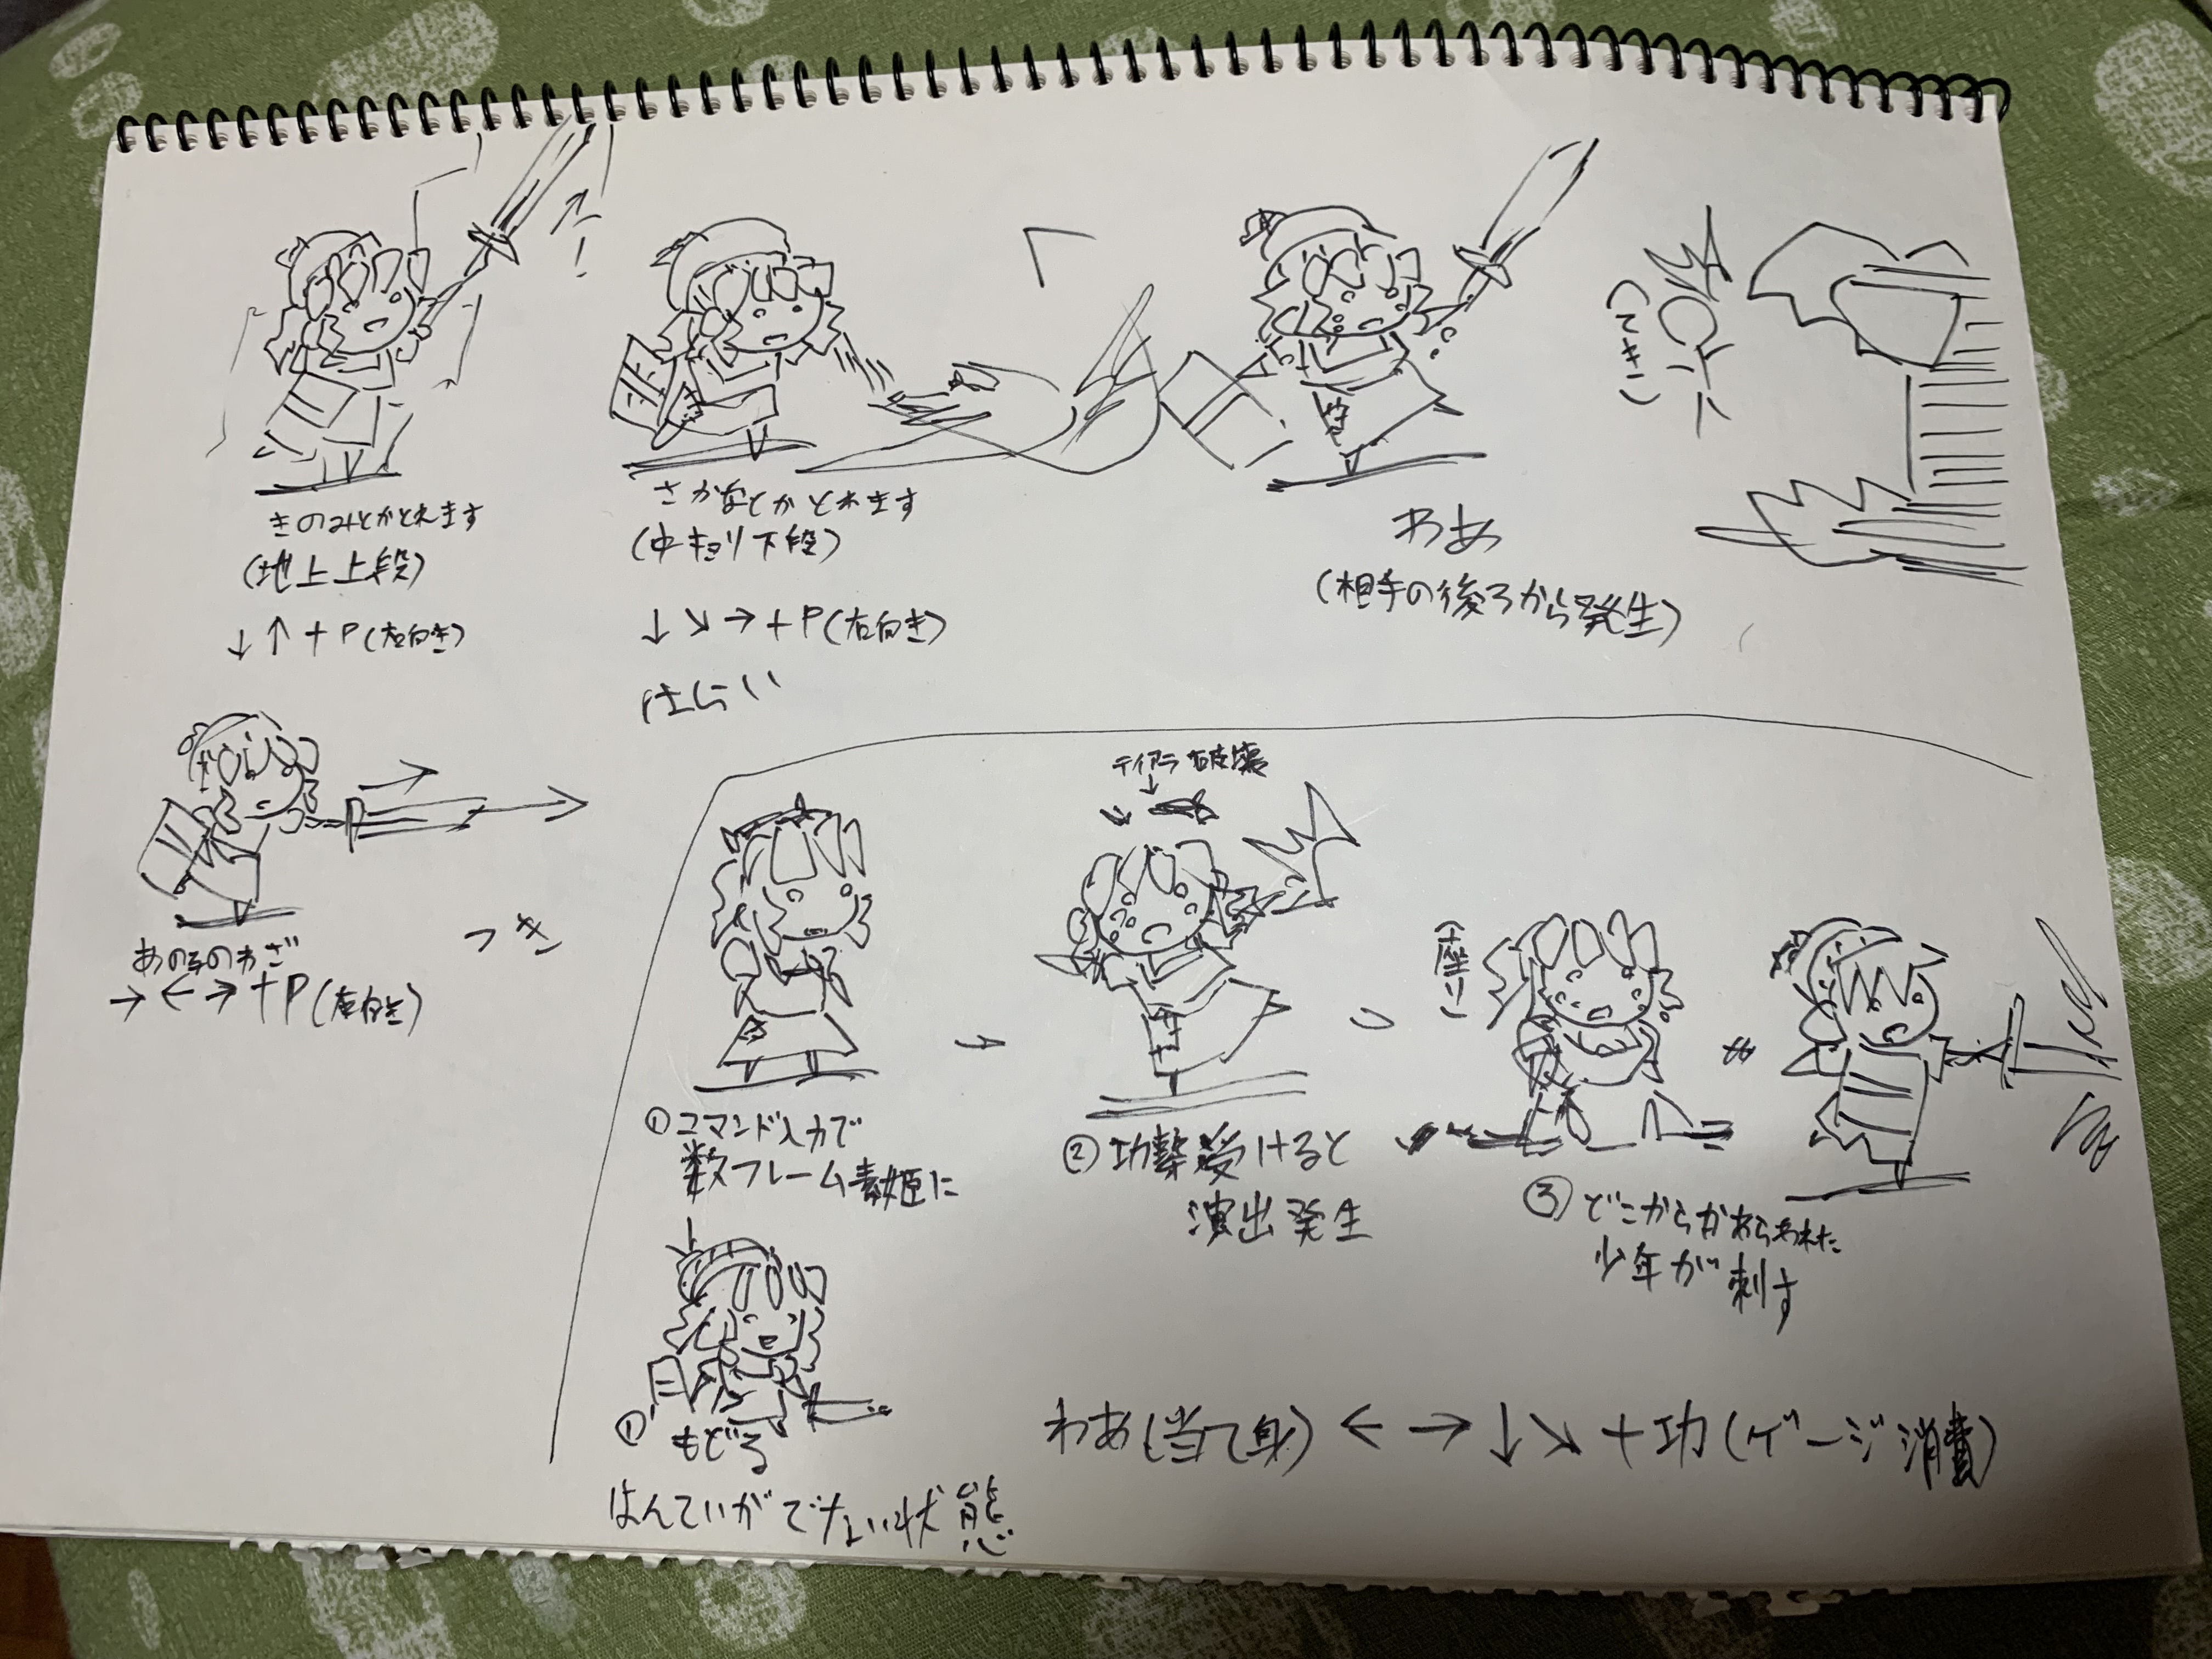 きのみとかとれます
(地上上段)
↓↑+P(右向き)
さかなとかとれます
(中キョリ下段)
↓↘→+P(右向き)
わあ
(相手の後ろから発生)
あの子のわざ
→←→+P(右向き)
つき
ティアラ破壊
①コマンド入力で
数フレーム素姫に
②功撃受けると
演出発生
③どこからかあらわれた
少年が刺す
①'
もどる
はんていがでない状態
わあ(当て身)←→↓↘+功(ゲージ消費)